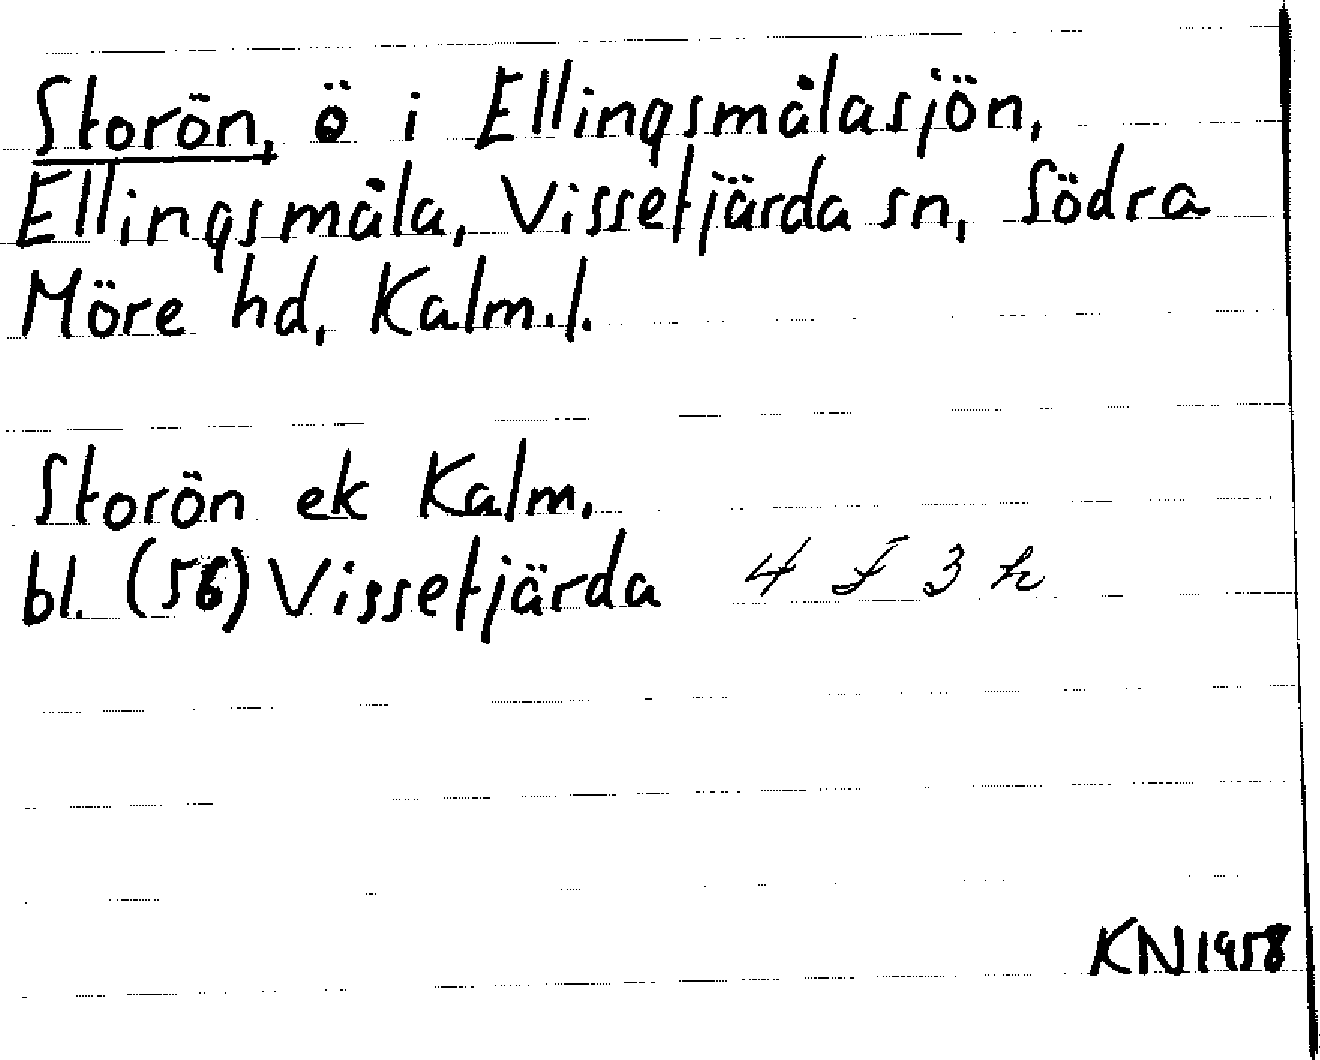 Storön, ö i Ellingsmålasjön,
Ellingsmåla, Vissefjärda sn, Södra
Möre hd, Kalm.l.
Storön ek Kalm.
bl. (56) Vissefjärda 4 F 3 h
KN 1958